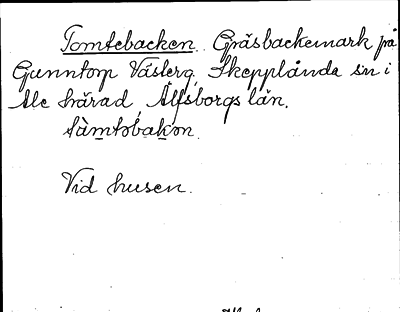 Tomtebacken. Gräsbackemark på
Gunntorp Västerg. Skepplanda sn i
Ale härad, Älfsborgs län.
tàmtəbakən.
Vid husen.